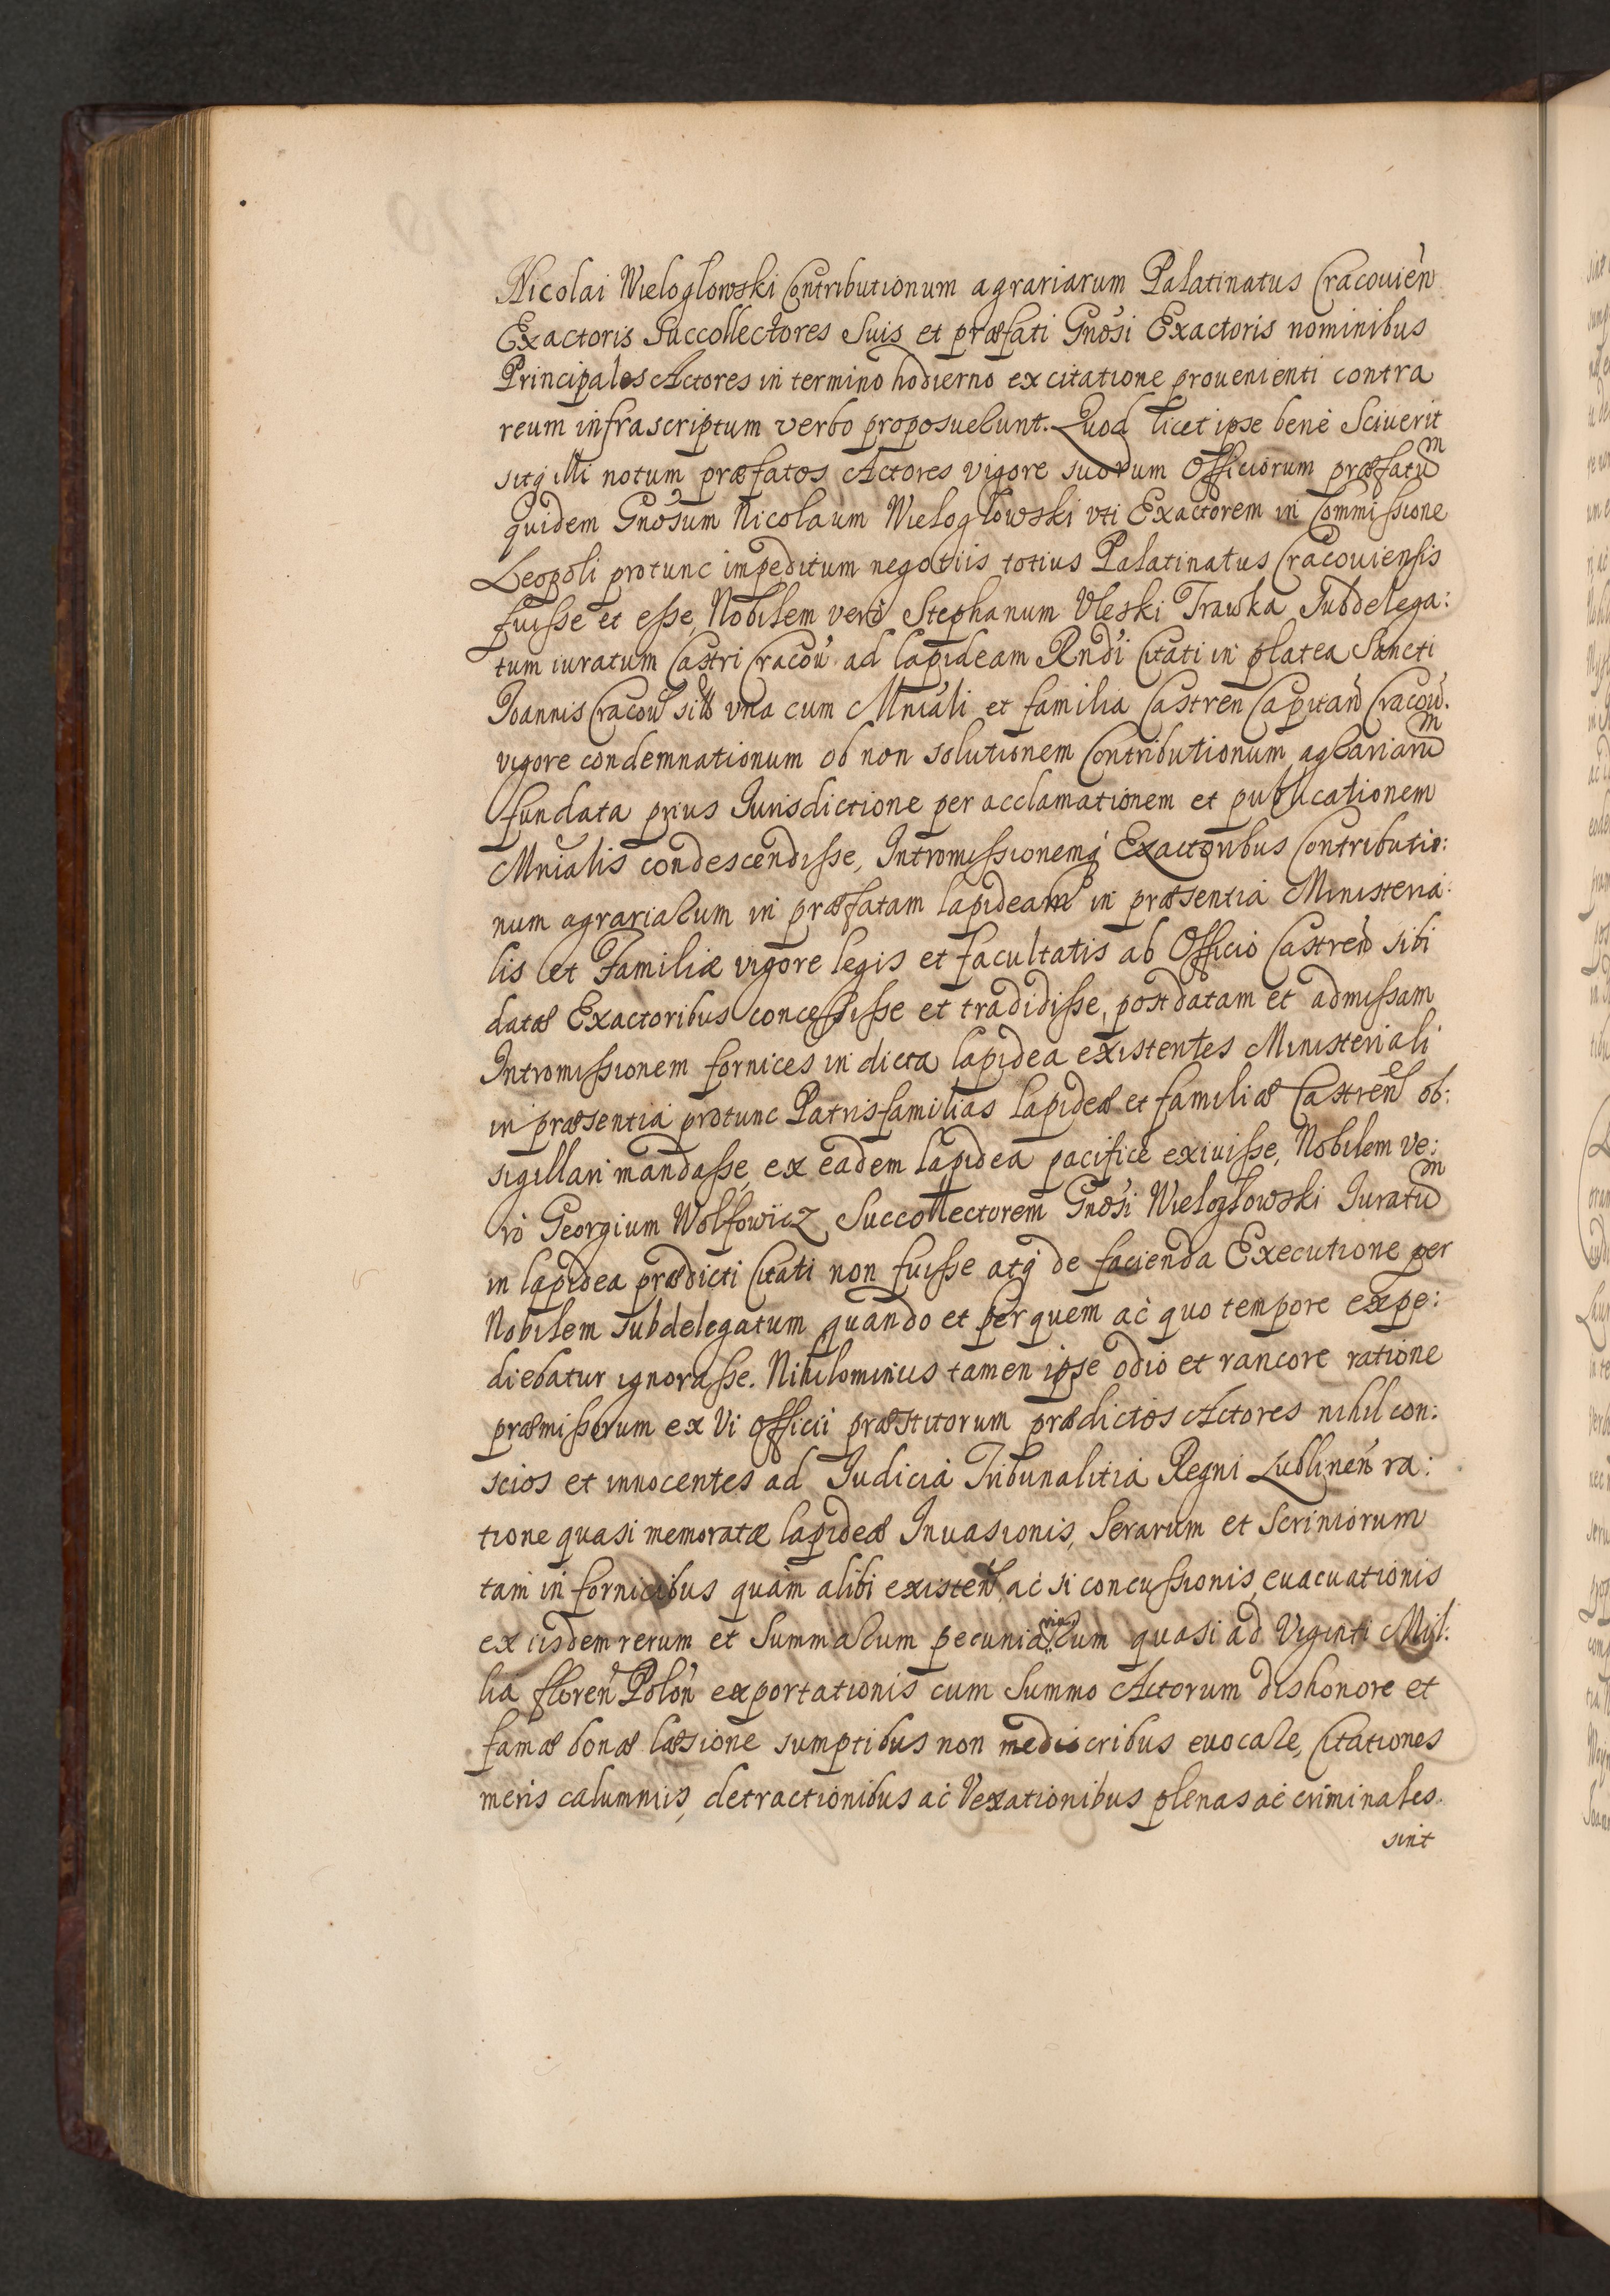 Nicolai Wieloglowski Contributionum agrariarum Palatinatus Cracouień
Exactoris Succollectores Suis et præfati Gnosi Exactoris nominibus
Principales Actores in termino hodierno ex citatione prouenienti contra
reum infrascriptum verbo proposuerunt. Quod licet ipse bene Sciuerit
sitq illi notum præfatos Actores vigore suorum Officiorum præfatum
quidem Gnosum Nicolaum Wieloglowski vti Exactorem in Commissione
Leopoli protunc impeditum negotiis totius Palatinatus Cracouiensis
fuisse et esse, Nobilem vero Stephanum Vleski Trawka Subdelega:
tum iuratum Castri Cracoũ ad lapideam Rndi Citati in platea Sancti
Joannis Cracoũ vna cum Mniali et familia Castren Capitań Cracoũ.
vigore condemnationum ob non solutionem Contributionum agrariarum
fundata prius Jurisdictione per acclamationem et publicationem
Mnialis condescendisse, Intromissionemq Exactoribus Contributio:
num agrariarum in præfatam lapideam in præsentia Ministeria:
lis et Familiæ vigore legis et facultatis ab Officio Castreń sibi
datæ Exactoribus concessisse et tradidisse, post datam et admissam
Intromissionem fornices in dicta lapidea existentes Ministeriali
in præsentia protunc Patrisfamilias lapideæ et familiæ Castreń ob:
sigillari mandasse, ex eadem lapidea pacifice exiuisse, Nobilem ve:
ro Georgium Wolfowicz Succollectorem Gnosi Wieloglowski Juratum
in lapidea prædicti Citati non fuisse atq de facienda Executione per
Nobilem Subdelegatum quando et per quem ac quo tempore expe:
diebatur ignorasse. Nihilominus tamen ipse odio et rancore ratione
præmissorum ex Vi officii præstitorum prædictos Actores nihil con:
scios et innocentes ad Judicia Tribunalitia Regni Lublineń ra:
tione quasi memoratæ lapideæ Inuasionis, Serarum et Scriniorum
tam in fornicibus quam alibi existeń ac si concussionis, euacuationis
ex iisdem rerum et Summarum pecuniariarum quasi ad Viginti Mil:
lia floreń Poloń exportationis cum Summo Actorum dishonore et
famæ bonæ læsione sumptibus non mediocribus euocare, Citationes
meris calumniis, detractionibus ac Vexationibus plenas ac criminales
sint